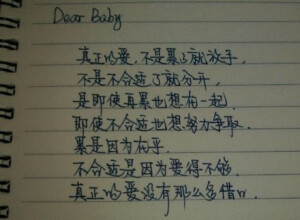 Dear Baby
真正的爱，不是累了就放手，
不是不合适了就分开，
是即使再累也想在一起，
即使不合适也想努力争取．
累是因为在乎，
不合适是因为爱得不够，
真正的爱没有那么多借口．